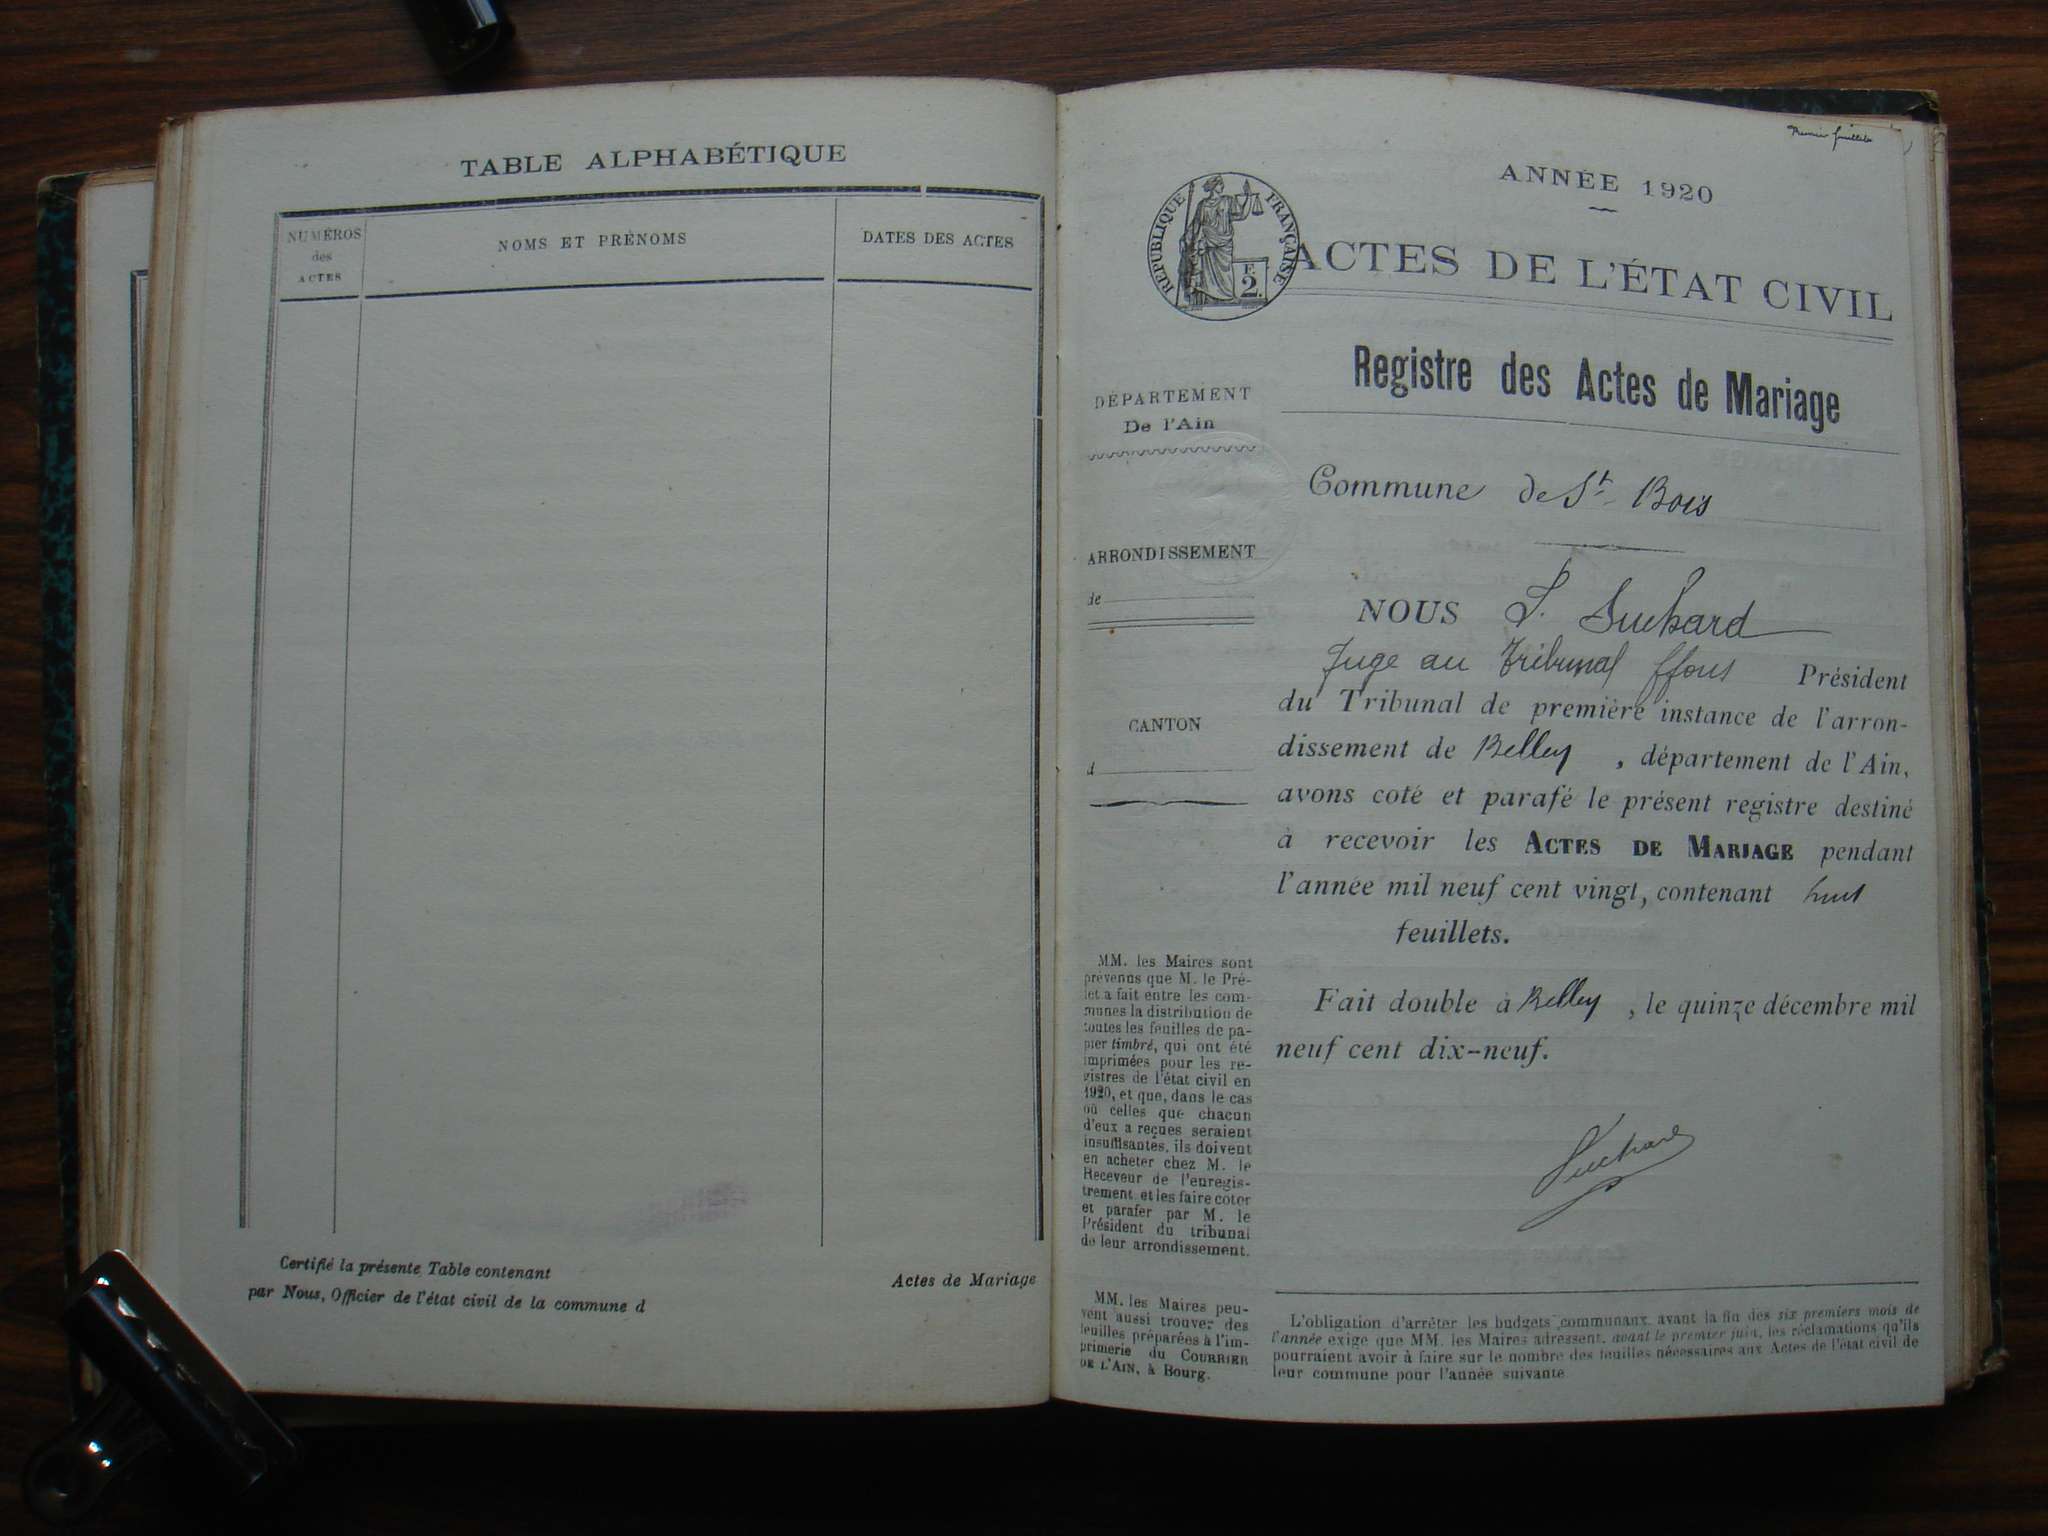 TABLE ALPHABÉTIQUE
NUMÉROS
des
ACTES
NOMS ET PRÉNOMS
DATES DES ACTES
Certifié la présente Table contenant
Actes de Mariage
par Nous, Officier de l'état civil de la commune d
Premier feuillet
ANNÉE 1920
RÉPUBLIQUE FRANÇAISE
F.
2.
ACTES DE L'ÉTAT CIVIL
Registre des Actes de Mariage
DÉPARTEMENT
De l'Ain
ARRONDISSEMENT
de
CANTON
d
MM. les Maires sont
prévenus que M. le Pré-
fet a fait entre les com-
munes la distribution de
toutes les feuilles de pa-
pier timbré, qui ont été
imprimées pour les re-
gistres de l'état civil en
1920, et que, dans le cas
où celles que chacun
d'eux a reçues seraient
insuffisantes, ils doivent
en acheter chez M. le
Receveur de l'enregis-
trement et les faire coter
et parafer par M. le
Président du tribunal
de leur arrondissement.
MM. les Maires peu-
vent aussi trouver des
feuilles préparées à l'im-
primerie du COURRIER
DE L'AIN, à Bourg.
Commune de St Bois
NOUS Suchard
Juge au Tribunal ffons Président
du Tribunal de première instance de l'arron-
dissement de Belley, département de l'Ain,
avons coté et parafé le présent registre destiné
à recevoir les ACTES DE MARIAGE pendant
l'année mil neuf cent vingt, contenant huit
feuillets.
Fait double à Belley, le quinze décembre mil
neuf cent dix-neuf.
Suchard
L'obligation d'arrêter les budgets communaux avant la fin des six premiers mois de
l'année exige que MM. les Maires adressent, avant le premier juin, les réclamations qu'ils
pourraient avoir à faire sur le nombre des feuilles nécessaires aux Actes de l'état civil de
leur commune pour l'année suivante